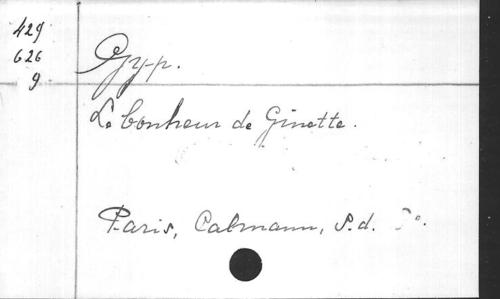 429
626
9
Gyp.
Le bonheur de Ginette.
Paris, Calmann, s.d. 8°.